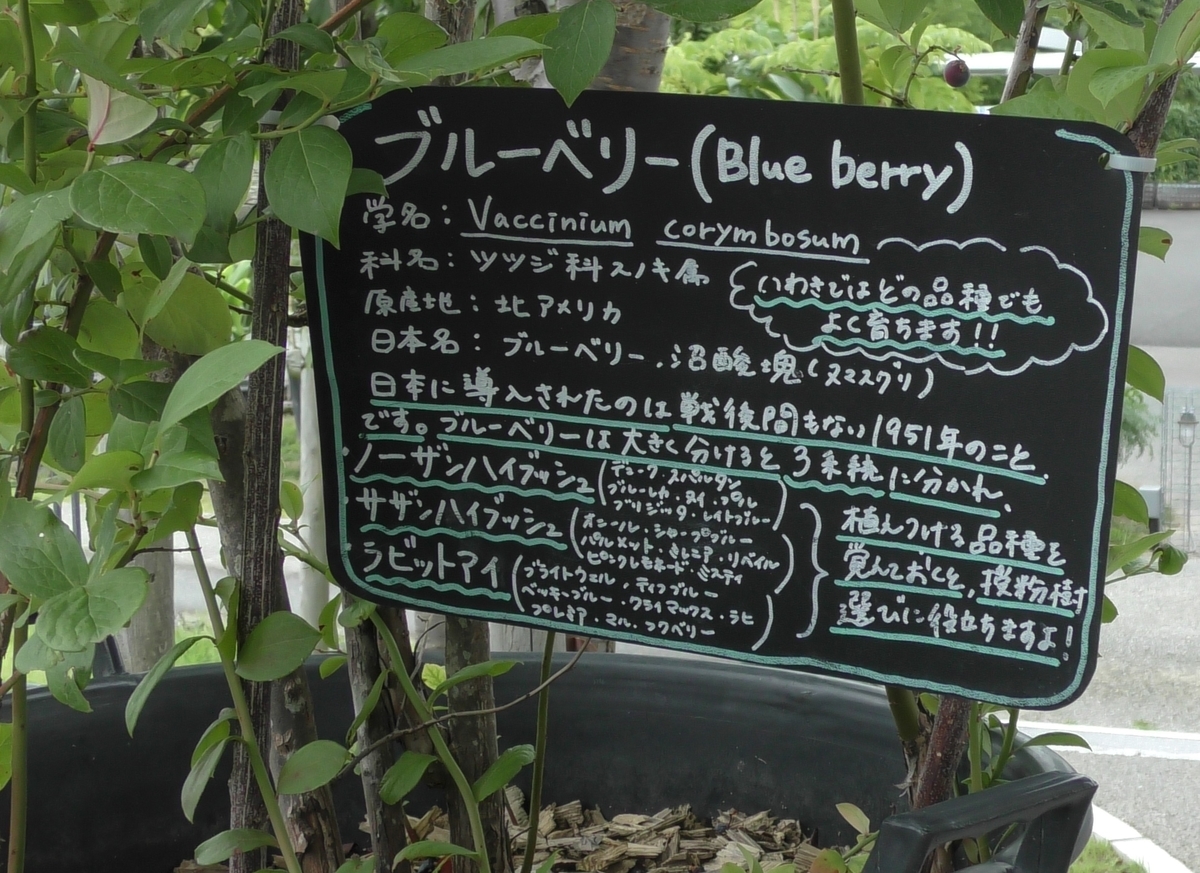 ブルーベリー(Blue berry)
学名：Vaccinium corymbosum
科名：ツツジ科スノキ属
原産地：北アメリカ
日本名：ブルーベリー、沼酸塊(ヌマスグリ)
いわきではどの品種でも
よく育ちます！！
日本に導入されたのは戦後間もない1951年のこと
です。ブルーベリーは大きく分けると3系統に分かれ、
・ノーザンハイブッシュ
(デューク・スパルタン
ブルーレカ・ヌイ・プル
ブリジッタ・レイトブルー)
・サザンハイブッシュ
(オニール・シャープブルー
パルメット・ミレニア・リベイル
ピンクレモネード・ミスティ)
・ラビットアイ
(ブライトウェル・ティフブルー
ベッキーブルー・クライマックス・ラヒ
プレミア・マル・フクベリー)
植えつける品種を
覚えておくと、授粉樹
選びに役立ちますよ！